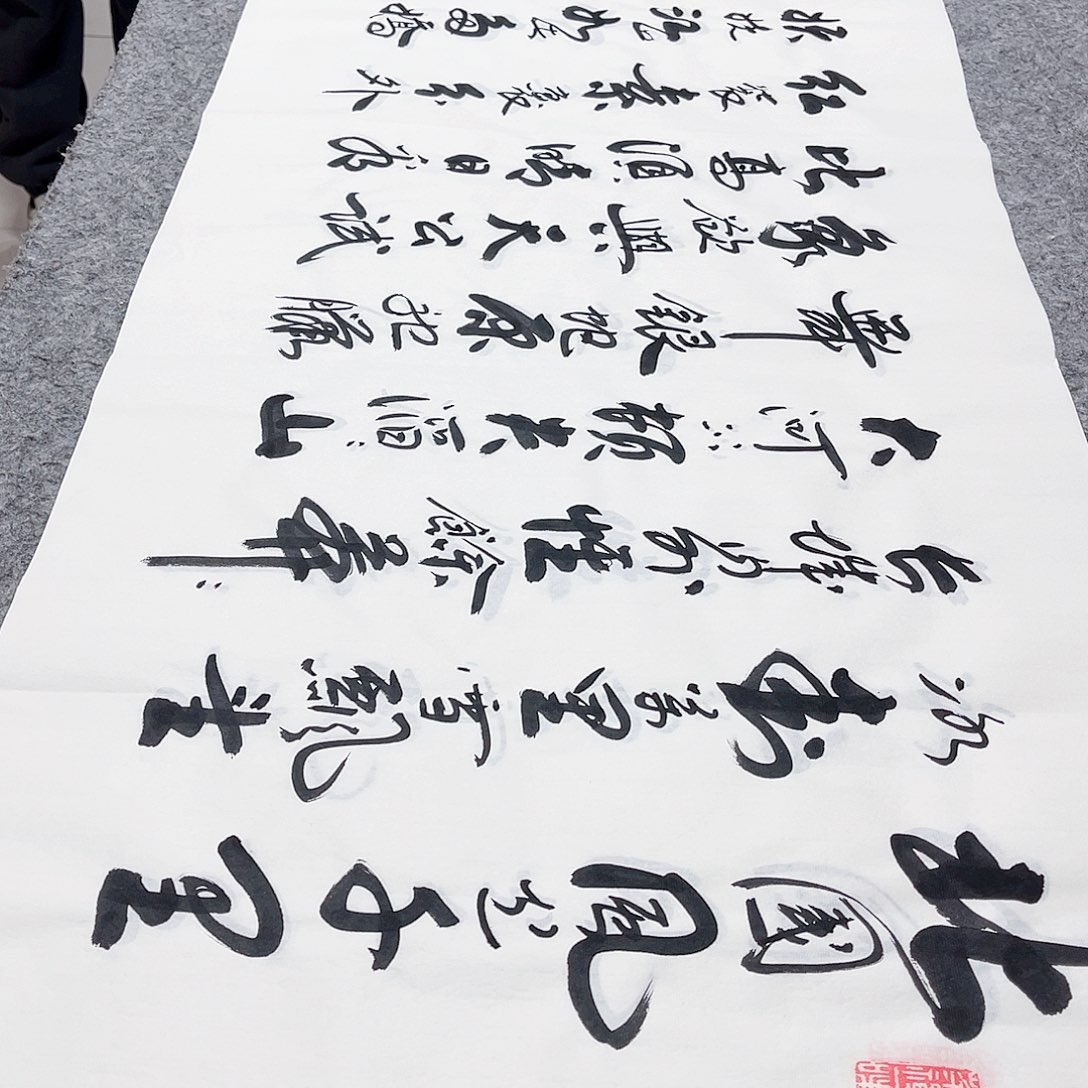 北國風光千里
冰封萬里雪飄望
長城內外惟餘莽〻
大河上下頓失滔〻山
舞銀蛇原馳臘
象欲與天公試
比高須晴日看
紅裝素裹分外
妖嬈江山如此多嬌